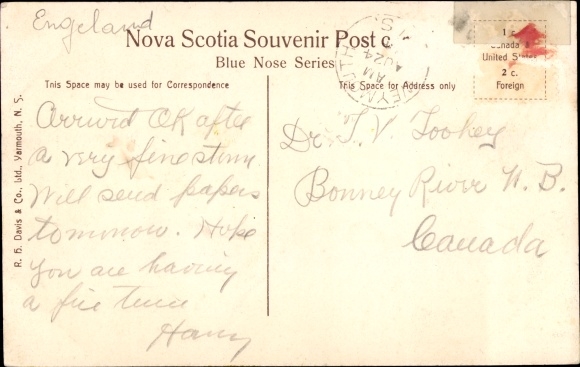 Engeland
Nova Scotia Souvenir Post c
Blue Nose Series
1 c.
Canada &
United States
2 c.
Foreign
WEYMOUTH
AM
AU 24
This Space may be used for Correspondence
This Space for Address only
R. H. Davis & Co., Ltd., Yarmouth, N. S.
Arrived OK after
a very fine
Will send papers
tomorrow. Hope
you are having
a fine time
Harry
Dr. T. V. Tookey
Bonney River N. B.
Canada